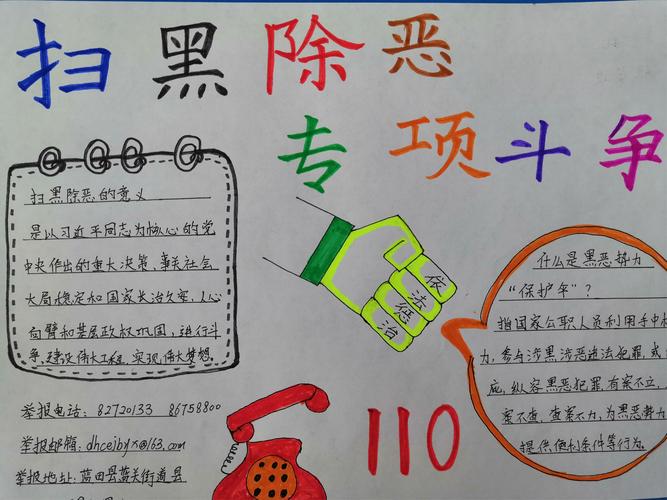 扫黑除恶
专项斗争
扫黑除恶的意义
是以习近平同志为核心的党
中央作出的重大决策,事关社会
大局稳定和国家长治久安,人心
向背和基层政权巩固,进行斗
争,建设伟大工程,实现伟大梦想.
举报电话: 82720133 86758800
举报邮箱: dhcejbyx@163.com
举报地址: 蓝田县蓝关街道县
依
法
惩
治
110
什么是黑恶势力
“保护伞”?
指国家公职人员利用手中权
力,参与涉黑涉恶违法犯罪,或
庇,纵容黑恶犯罪,有案不立,
案不查,查案不力,为黑恶势力
提供便利条件等行为.